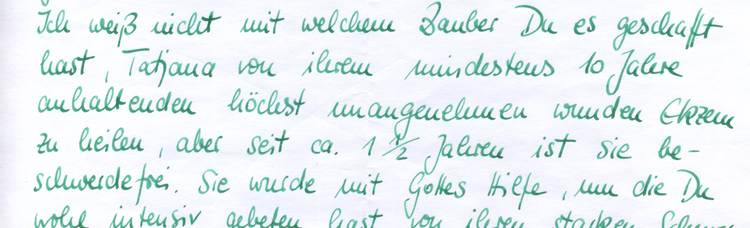 Ich weiß nicht mit welchem Zauber Du es geschafft
hast, Tatjana von ihrem mindestens 10 Jahre
anhaltenden höchst unangenehmen wunden Ekzem
zu heilen, aber seit ca. 1 1/2 Jahren ist sie be-
schwerdefrei. Sie wurde mit Gottes Hilfe, um die Du
wohl intensiv gebeten hast von ihren starken